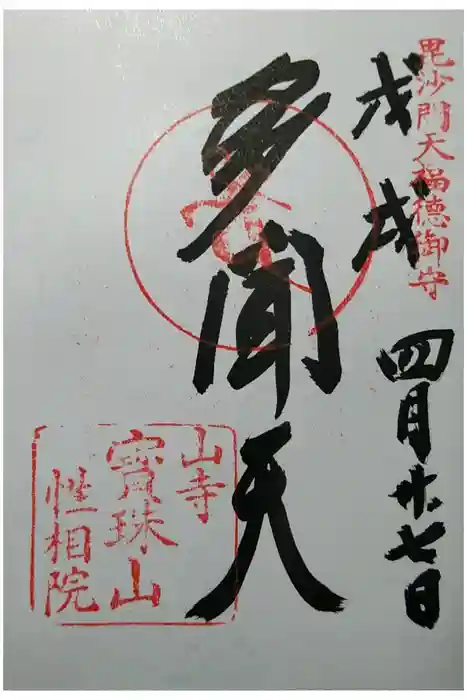 毘沙門天福徳御守
戊戌四月廿七日
多聞天
山寺
寳珠山
性相院